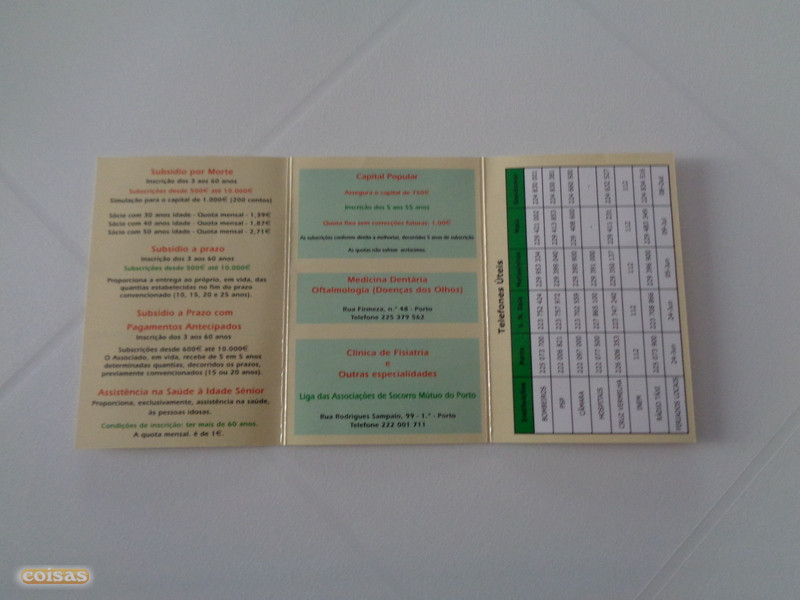 Subsídio por Morte
Inscrição dos 3 aos 60 anos
Subscrições desde 500€ até 10.000€
Simulação para o capital de 1.000€ (200 contos)
Sócio com 30 anos idade - Quota mensal - 1,39€
Sócio com 40 anos idade - Quota mensal - 1,87€
Sócio com 50 anos idade - Quota mensal - 2,71€
Subsídio a prazo
Inscrição dos 3 aos 60 anos
Subscrições desde 500€ até 10.000€
Proporciona a entrega ao próprio, em vida, das
quantias estabelecidas no fim do prazo
convencionado (10, 15, 20 e 25 anos).
Subsídio a Prazo com
Pagamentos Antecipados
Inscrição dos 3 aos 60 anos
Subscrições desde 600€ até 10.000€
O Associado, em vida, recebe de 5 em 5 anos
determinadas quantias, decorridos os prazos,
previamente convencionados (15 ou 20 anos).
Assistência na Saúde à Idade Sénior
Proporciona, exclusivamente, assistência na saúde,
às pessoas idosas.
Condições de inscrição: ter mais de 60 anos.
A quota mensal é de 1€.
Capital Popular
Assegura o capital de 750€
Inscrição dos 5 aos 55 anos
Quota fixa sem correcções futuras: 1.00€
As subscrições conforme direito a melhorias, decorridos 5 anos de subscrição
As quotas não sofrem acréscimo.
Medicina Dentária
Oftalmologia (Doenças dos Olhos)
Rua Firmeza, n.º 48 - Porto
Telefone 225 379 562
Clínica de Fisiatria
e
Outras especialidades
Liga das Associações de Socorro Mútuo do Porto
Rua Rodrigues Sampaio, 99 - 1.º - Porto
Telefone 222 001 711
Telefones Úteis
Instituições Porto V. N. Gaia Matosinhos Maia Gondomar
BOMBEIROS 225 073 700 223 752 424 229 952 104 229 421 002 224 830 501
PSP 222 006 821 223 757 972 229 399 040 229 413 853 224 830 381
CÂMARA 222 097 000 223 702 559 229 390 900 229 408 600 224 660 500
HOSPITAIS 222 077 500 227 865 100 229 391 000 -
CRUZ VERMELHA 226 006 353 223 747 240 229 350 137 229 411 231 224 632 527
INEM 112 112 112 112 112
RÁDIO TÁXI 225 073 900 223 708 899 229 396 400 229 482 349 224 834 516
FERIADOS LOCAIS 24-Jun 24-Jun
coisas